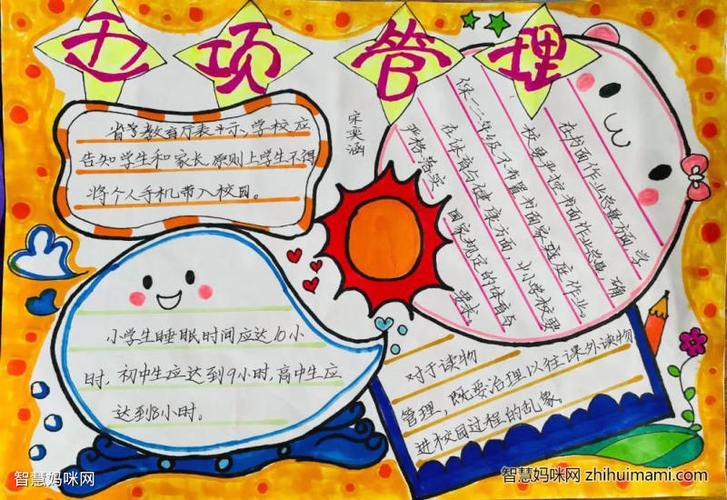 五项管理
宋奕涵
省等教育厅表示,学校应
告知学生和家长,原则上学生不得
将个人手机带入校园。
在书面作业总量方面,学
校要严控书面作业总量 确
保一二年级不布置书面家庭作业。
在体育与健康方面,中小学校理
严格落实 国家规定的体育与
要求
小学生睡眠时间应达10小
时,初中生应达到9小时,高中生应
达到8小时。
对于读物
管理,既要治理以往课外读物
进校园过程的乱象。
智慧妈咪网
智慧妈咪网 zhihuimami.com